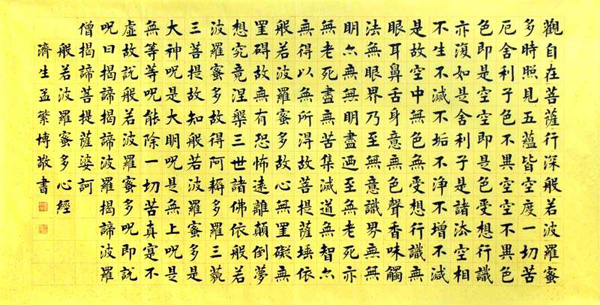 觀自在菩薩行深般若波羅蜜
多時照見五蘊皆空度一切苦
厄舍利子色不異空空不異色
色即是空空即是色受想行識
亦復如是舍利子是諸法空相
不生不滅不垢不淨不增不減
是故空中無色無受想行識無
眼耳鼻舌身意無色聲香味觸
法無眼界乃至無意識界無無
明亦無無明盡乃至無老死亦
無老死盡無苦集滅道無智亦
無得以無所得故菩提薩埵依
般若波羅蜜多故心無罣礙無
罣礙故無有恐怖遠離顛倒夢
想究竟涅槃三世諸佛依般若
波羅蜜多故得阿耨多羅三藐
三菩提故知般若波羅蜜多是
大神呪是大明呪是無上呪是
無等等呪能除一切苦真實不
虛故說般若波羅蜜多呪即說
呪曰揭諦揭諦波羅揭諦波羅
僧揭諦菩提薩婆訶
般若波羅蜜多心經
濟生孟繁博敬書